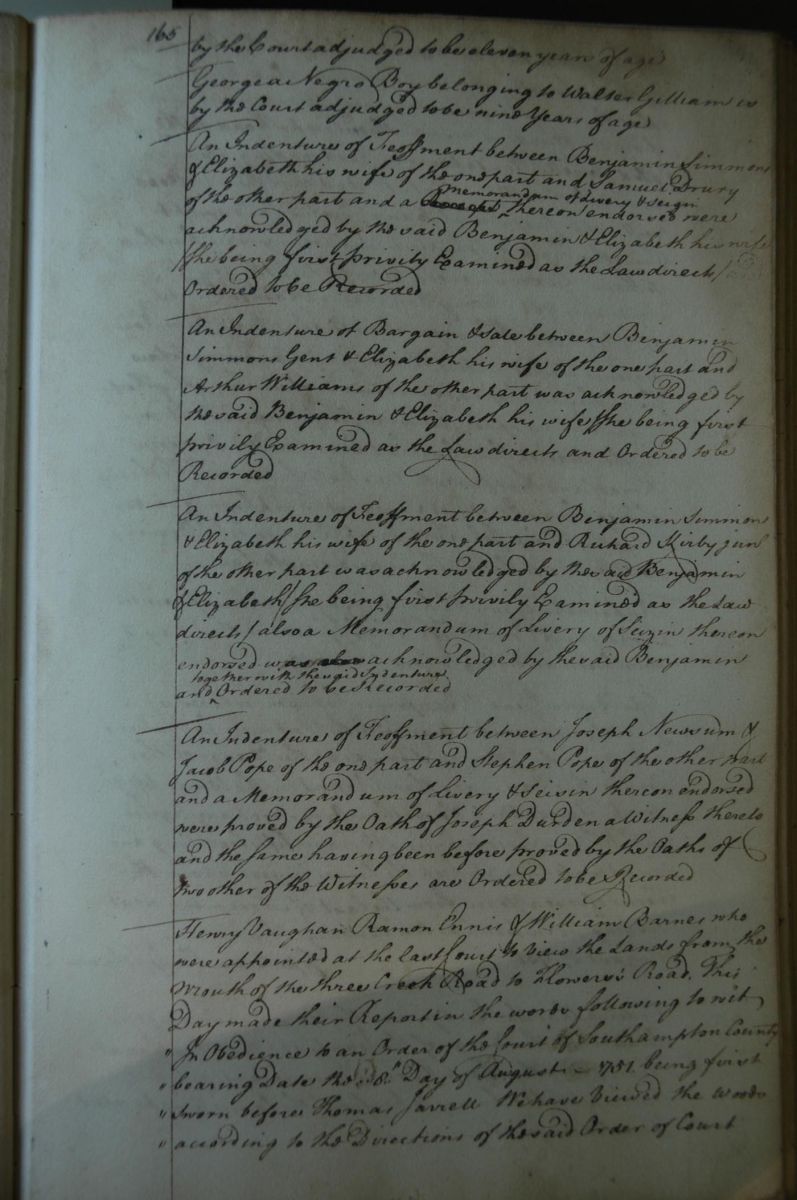 165
by the Court adjudged to be eleven years of age
George a Negro Boy belonging to Walter Gilliam is
by the Court adjudged to be nine Years of age
An Indenture of Feoffment between Benjamin Simmons
& Elizabeth his wife of the one part and Samuel Drury
memorandum of Livery & Seizin
of the other part and a thereon endorsed were
acknowledged by the said Benjamin & Elizabeth his wife
/she being first privily Examined as the Law directs/
Ordered to be Recorded
An Indenture of Bargain & sale between Benjamin
Simmons Gent & Elizabeth his wife of the one part and
Arthur Williams of the other part was acknowledged by
the said Benjamin & Elizabeth his wife /she being first
privily Examined as the Law directs and Ordered to be
Recorded
An Indenture of Feoffment between Benjamin Simmons
& Elizabeth his wife of the one part and Richard Kirby jun
of the other part was acknowledged by the said Benjamin
& Elizabeth /she being first privily Examined as the Law
directs/ also a Memorandum of Livery of Seizin thereon
endorsed was acknowledged by the said Benjamin
together with the said Indenture
and ^ Ordered to be Recorded
An Indenture of Feoffment between Joseph Newsum &
Jacob Pope of the one part and Stephen Pope of the other part
and a Memorandum of Livery & Seisin thereon endorsed
were proved by the Oath of Joseph Durden a Witness thereto
and the same having been before proved by the Oaths of
two other of the Witnesses are Ordered to be Recorded
Henry Vaughan Ramon Ennis & William Barnes who
were appointed at the last Court to View the Lands from the
Mouth of the three Creek Road to Flowers's Road. This
Day made their Report in the words following to wit
" In Obedience to an Order of the Court of Southampton County
" bearing Date the 8th Day of August 1751 being first
" sworn before Thomas Jarrell We have Viewed the Woods
" according to the Directions of the said Order of Court